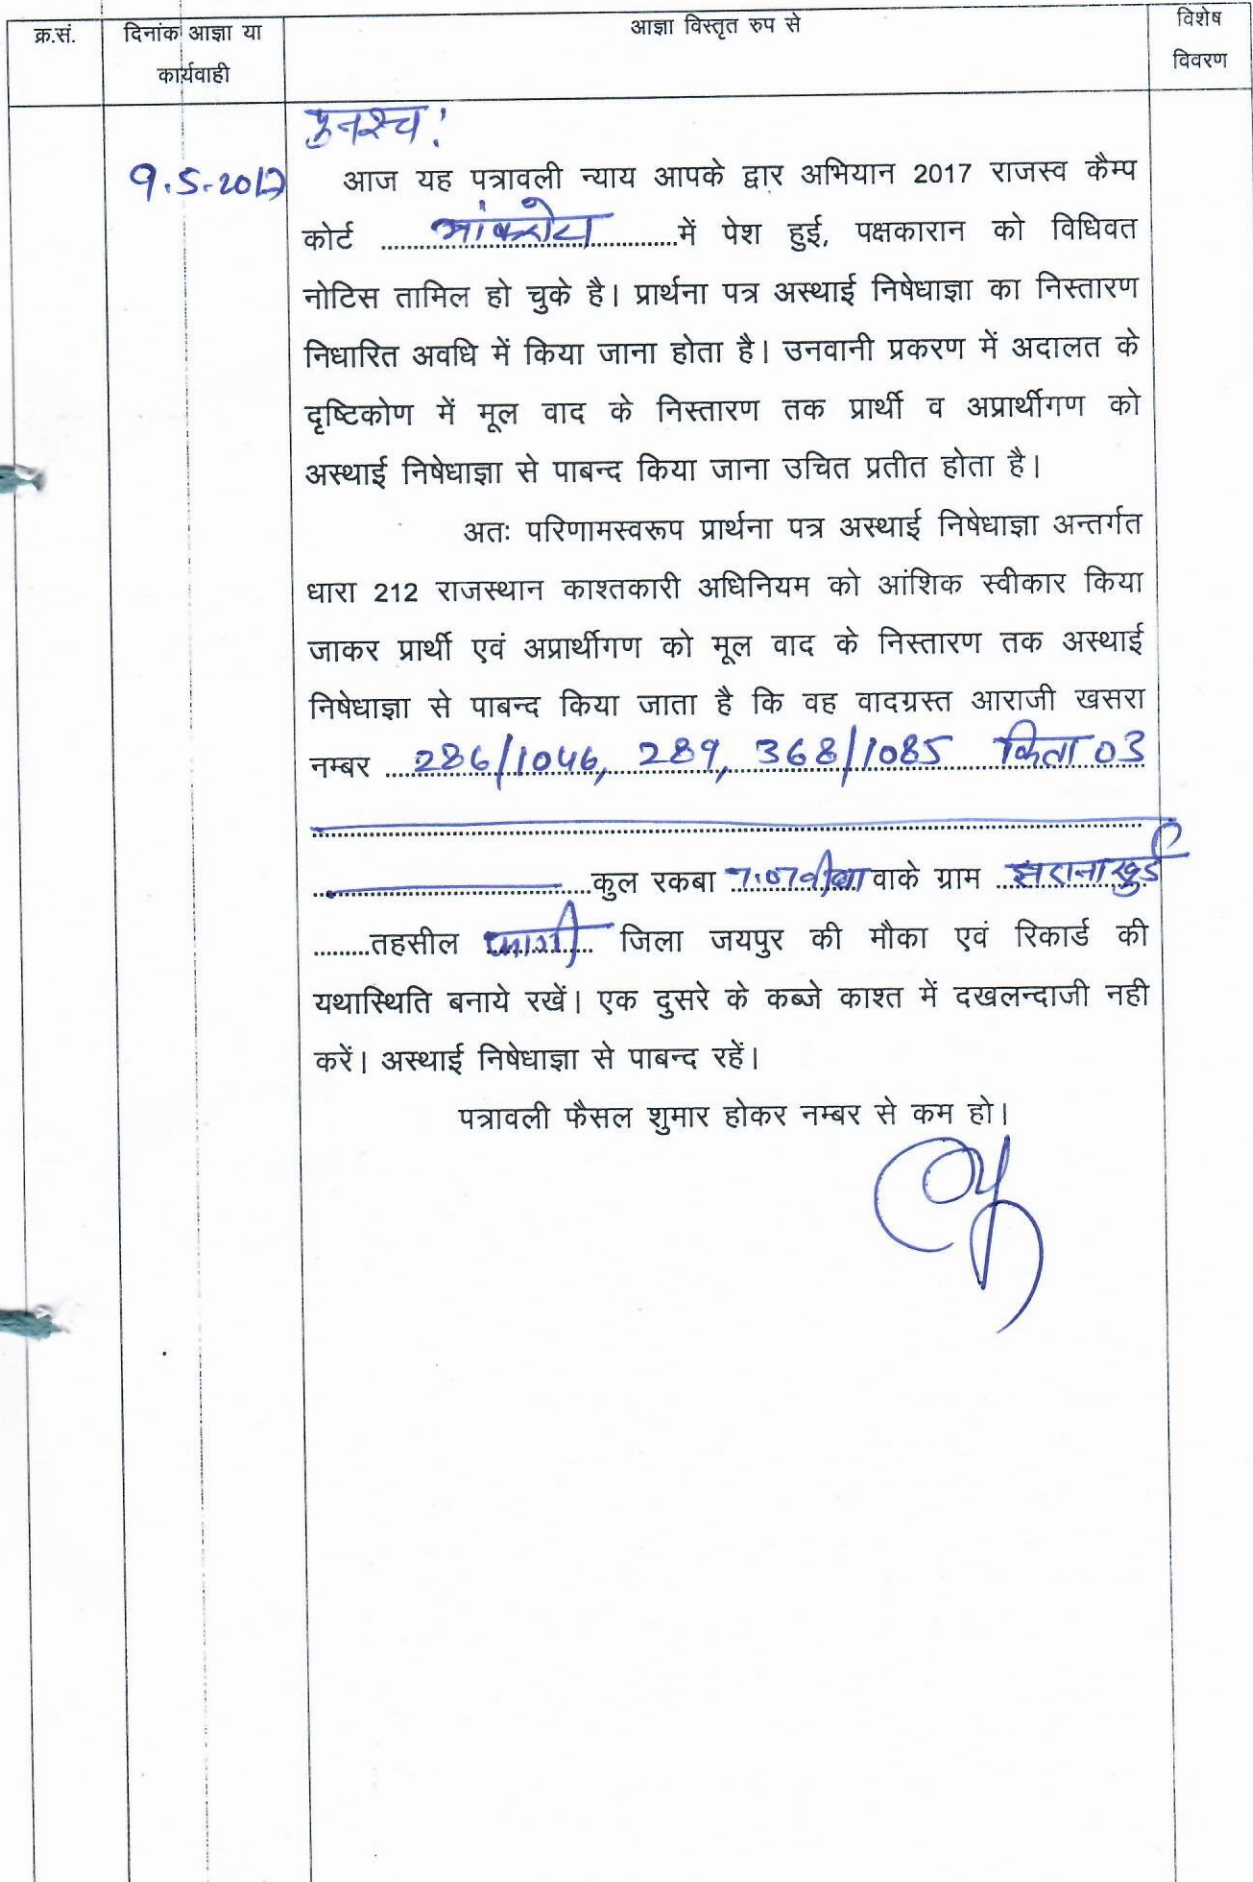 क्र.सं.
दिनांक आज्ञा या
कार्यवाही
आज्ञा विस्तृत रुप से
विशेष
विवरण
पुनश्च:
9.5.2017
आज यह पत्रावली न्याय आपके द्वार अभियान 2017 राजस्व कैम्प
कोर्ट ........................में पेश हुई, पक्षकारान को विधिवत
नोटिस तामिल हो चुके है। प्रार्थना पत्र अस्थाई निषेधाज्ञा का निस्तारण
निधारित अवधि में किया जाना होता है। उनवानी प्रकरण में अदालत के
दृष्टिकोण में मूल वाद के निस्तारण तक प्रार्थी व अप्रार्थीगण को
अस्थाई निषेधाज्ञा से पाबन्द किया जाना उचित प्रतीत होता है।
अतः परिणामस्वरूप प्रार्थना पत्र अस्थाई निषेधाज्ञा अन्तर्गत
धारा 212 राजस्थान काश्तकारी अधिनियम को आंशिक स्वीकार किया
जाकर प्रार्थी एवं अप्रार्थीगण को मूल वाद के निस्तारण तक अस्थाई
निषेधाज्ञा से पाबन्द किया जाता है कि वह वादग्रस्त आराजी खसरा
नम्बर 286/1046, 289, 368/1085 किता 03
कुल रकबा 7.07 बीघा वाके ग्राम झराना खुर्द
.........तहसील फागी जिला जयपुर की मौका एवं रिकार्ड की
यथास्थिति बनाये रखें। एक दुसरे के कब्जे काश्त में दखलन्दाजी नही
करें। अस्थाई निषेधाज्ञा से पाबन्द रहें।
पत्रावली फैसल शुमार होकर नम्बर से कम हो।